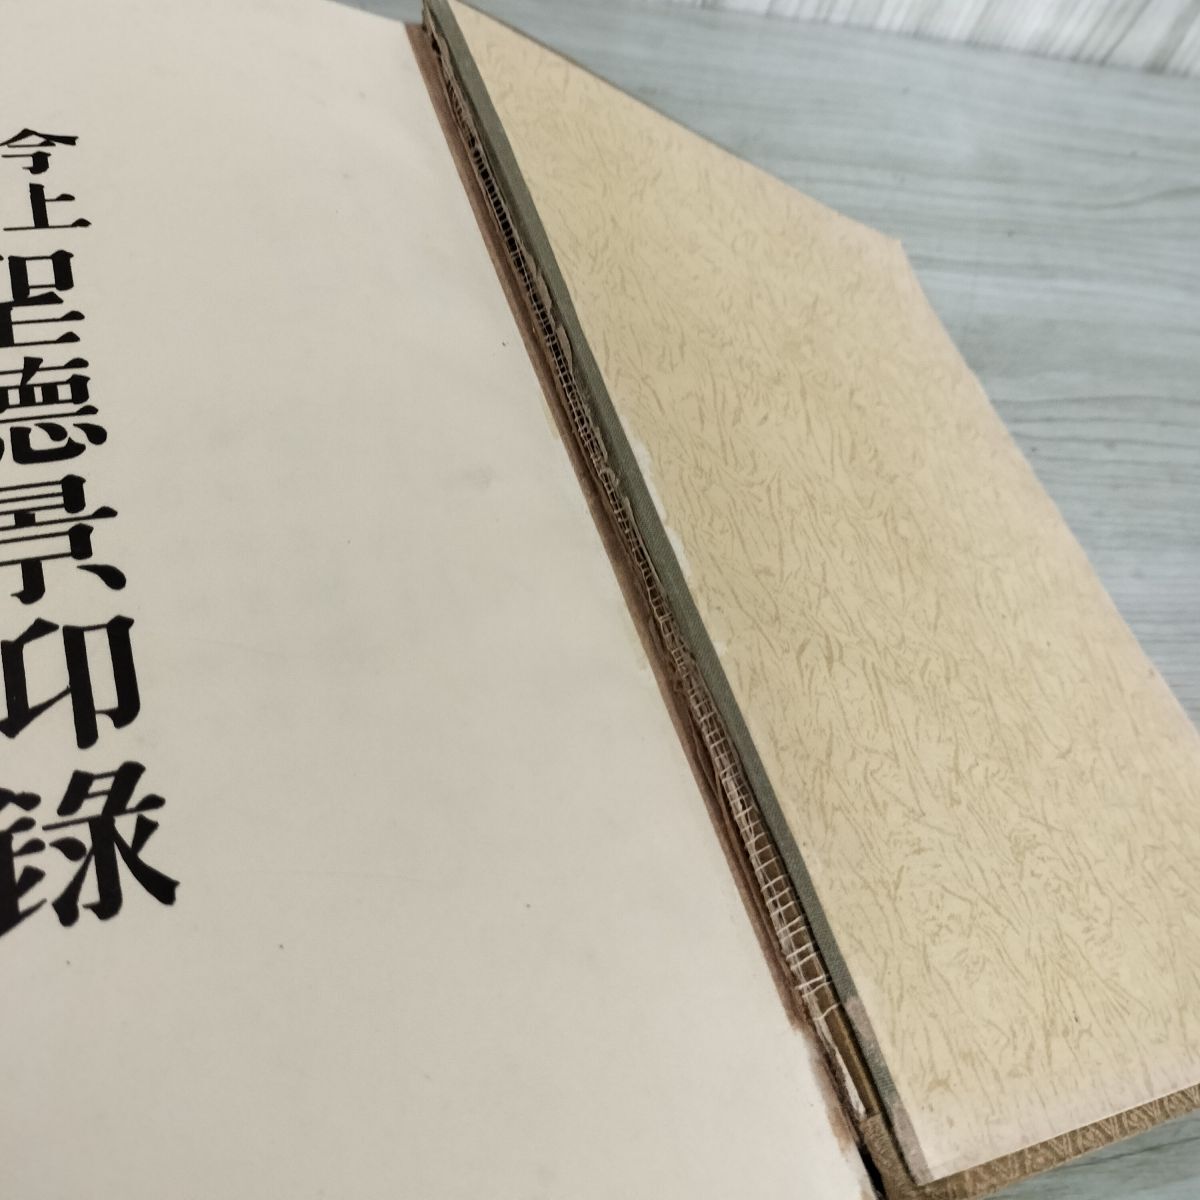 今上聖德景印錄